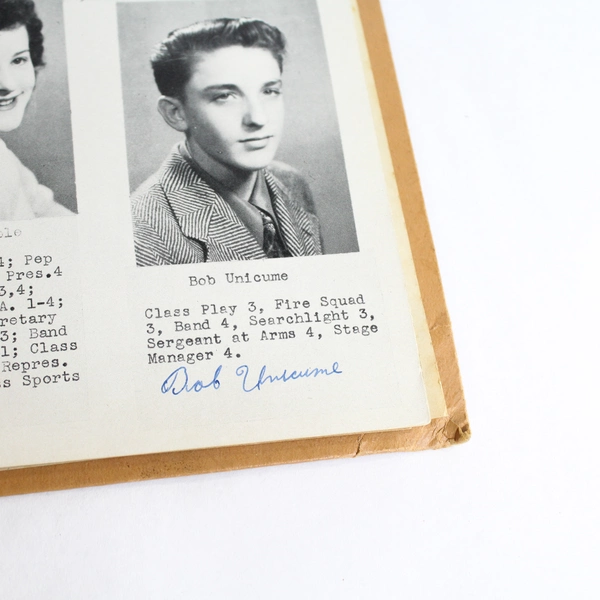 4; Pep
Pres.4
3,4;
A. 1-4;
retary
3; Band
1; Class
Repres.
s Sports
Bob Unicume
Class Play 3, Fire Squad
3, Band 4, Searchlight 3,
Sergeant at Arms 4, Stage
Manager 4.
Bob Unicume